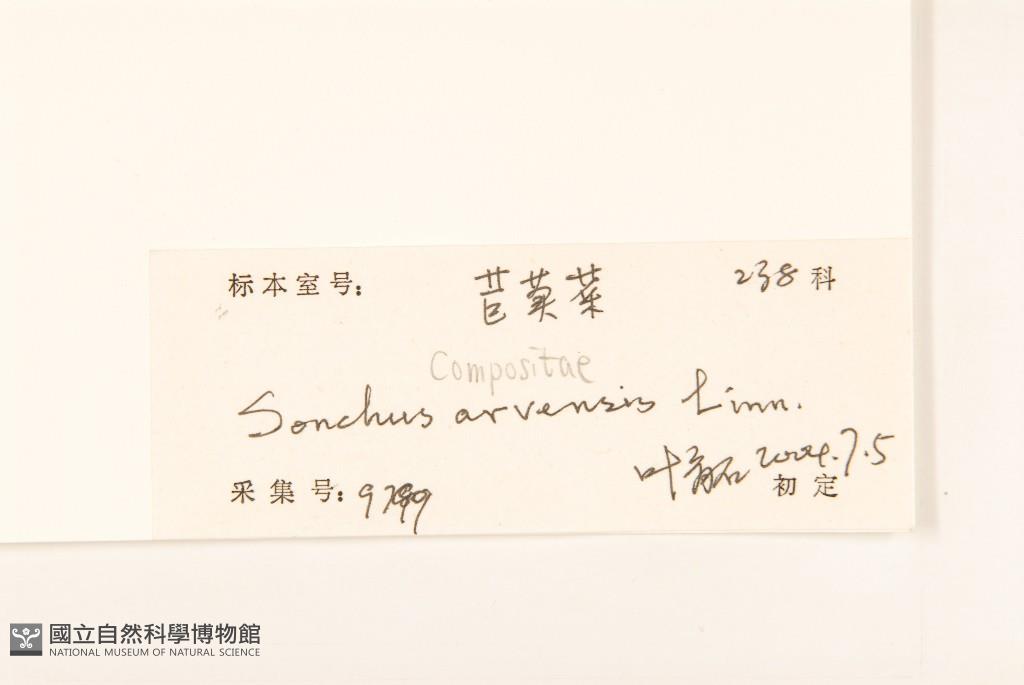 标本室号： 苣荬菜 238科
Compositae
Sonchus arvensis Linn.
叶育石 2004.7.5
采集号： 9799 初定
國立自然科學博物館
NATIONAL MUSEUM OF NATURAL SCIENCE